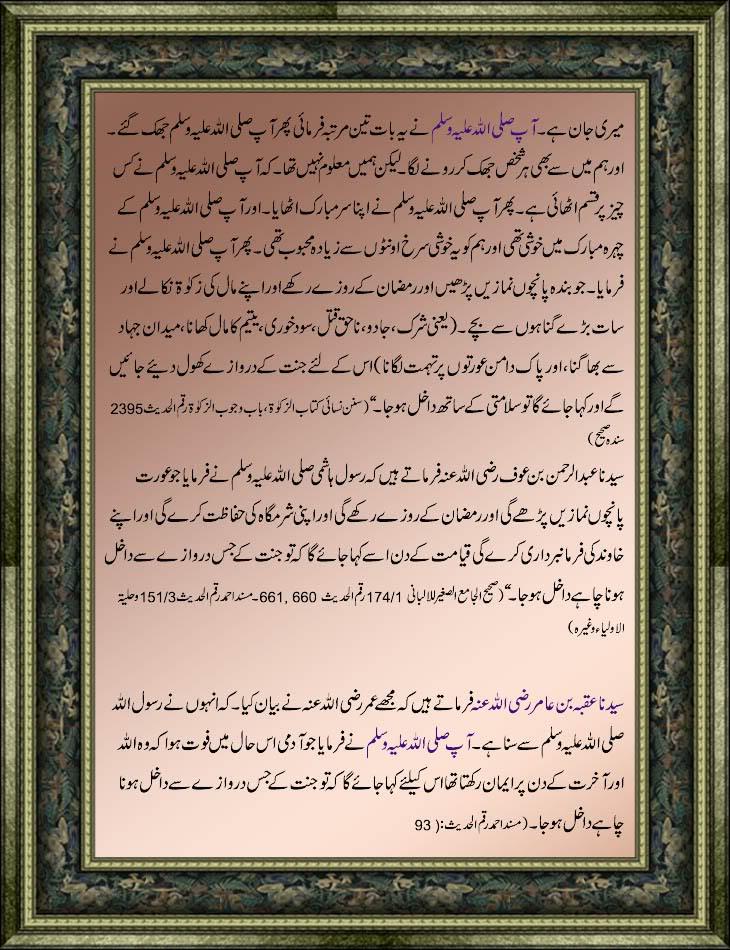 میری جان ہے۔ آپ صلی اللہ علیہ وسلم نے یہ بات تین مرتبہ فرمائی پھر آپ صلی اللہ علیہ وسلم جھک گئے۔
اور ہم میں سے بھی ہر شخص جھک کر رونے لگا۔ لیکن ہمیں معلوم نہیں تھا۔ کہ آپ صلی اللہ علیہ وسلم نے کس
چیز پر قسم اٹھائی ہے۔ پھر آپ صلی اللہ علیہ وسلم نے اپنا سر مبارک اٹھایا۔ اور آپ صلی اللہ علیہ وسلم کے
چہرہ مبارک میں خوشی تھی اور ہم کو یہ خوشی سرخ اونٹوں سے زیادہ محبوب تھی۔ پھر آپ صلی اللہ علیہ وسلم نے
فرمایا۔ جو بندہ پانچوں نمازیں پڑھیں اور رمضان کے روزے رکھے اور اپنے مال کی زکوٰۃ نکالے اور
سات بڑے گناہوں سے بچے۔ (یعنی شرک، جادو، ناحق قتل، سود خوری، یتیم کا مال کھانا، میدان جہاد
سے بھاگنا، اور پاک دامن عورتوں پر تہمت لگانا) اس کے لئے جنت کے دروازے کھول دیئے جائیں
گے اور کہا جائے گا تو سلامتی کے ساتھ داخل ہو جا۔“ (سنن نسائی کتاب الزکوٰۃ، باب وجوب الزکوٰۃ رقم الحدیث 2395
سندہ صحیح)
سیدنا عبدالرحمن بن عوف رضی اللہ عنہ فرماتے ہیں کہ رسول ہاشمی صلی اللہ علیہ وسلم نے فرمایا جو عورت
پانچوں نمازیں پڑھے گی اور رمضان کے روزے رکھے گی اور اپنی شرمگاہ کی حفاظت کرے گی اور اپنے
خاوند کی فرمانبرداری کرے گی قیامت کے دن اسے کہا جائے گا کہ تو جنت کے جس دروازے سے داخل
ہونا چاہے داخل ہو جا۔“ (صحیح الجامع الصغیر للالبانی 174/1 رقم الحدیث 660 ,661۔ مسند احمد رقم الحدیث 151/3 وحلیۃ
الاولیاء وغیرہ)
سیدنا عقبہ بن عامر رضی اللہ عنہ فرماتے ہیں کہ مجھے عمر رضی اللہ عنہ نے بیان کیا۔ کہ انہوں نے رسول اللہ
صلی اللہ علیہ وسلم سے سنا ہے۔ آپ صلی اللہ علیہ وسلم نے فرمایا جو آدمی اس حال میں فوت ہوا کہ وہ اللہ
اور آخرت کے دن پر ایمان رکھتا تھا اس کیلئے کہا جائے گا کہ تو جنت کے جس دروازے سے داخل ہونا
چاہے داخل ہو جا۔ (مسند احمد رقم الحدیث:( 93